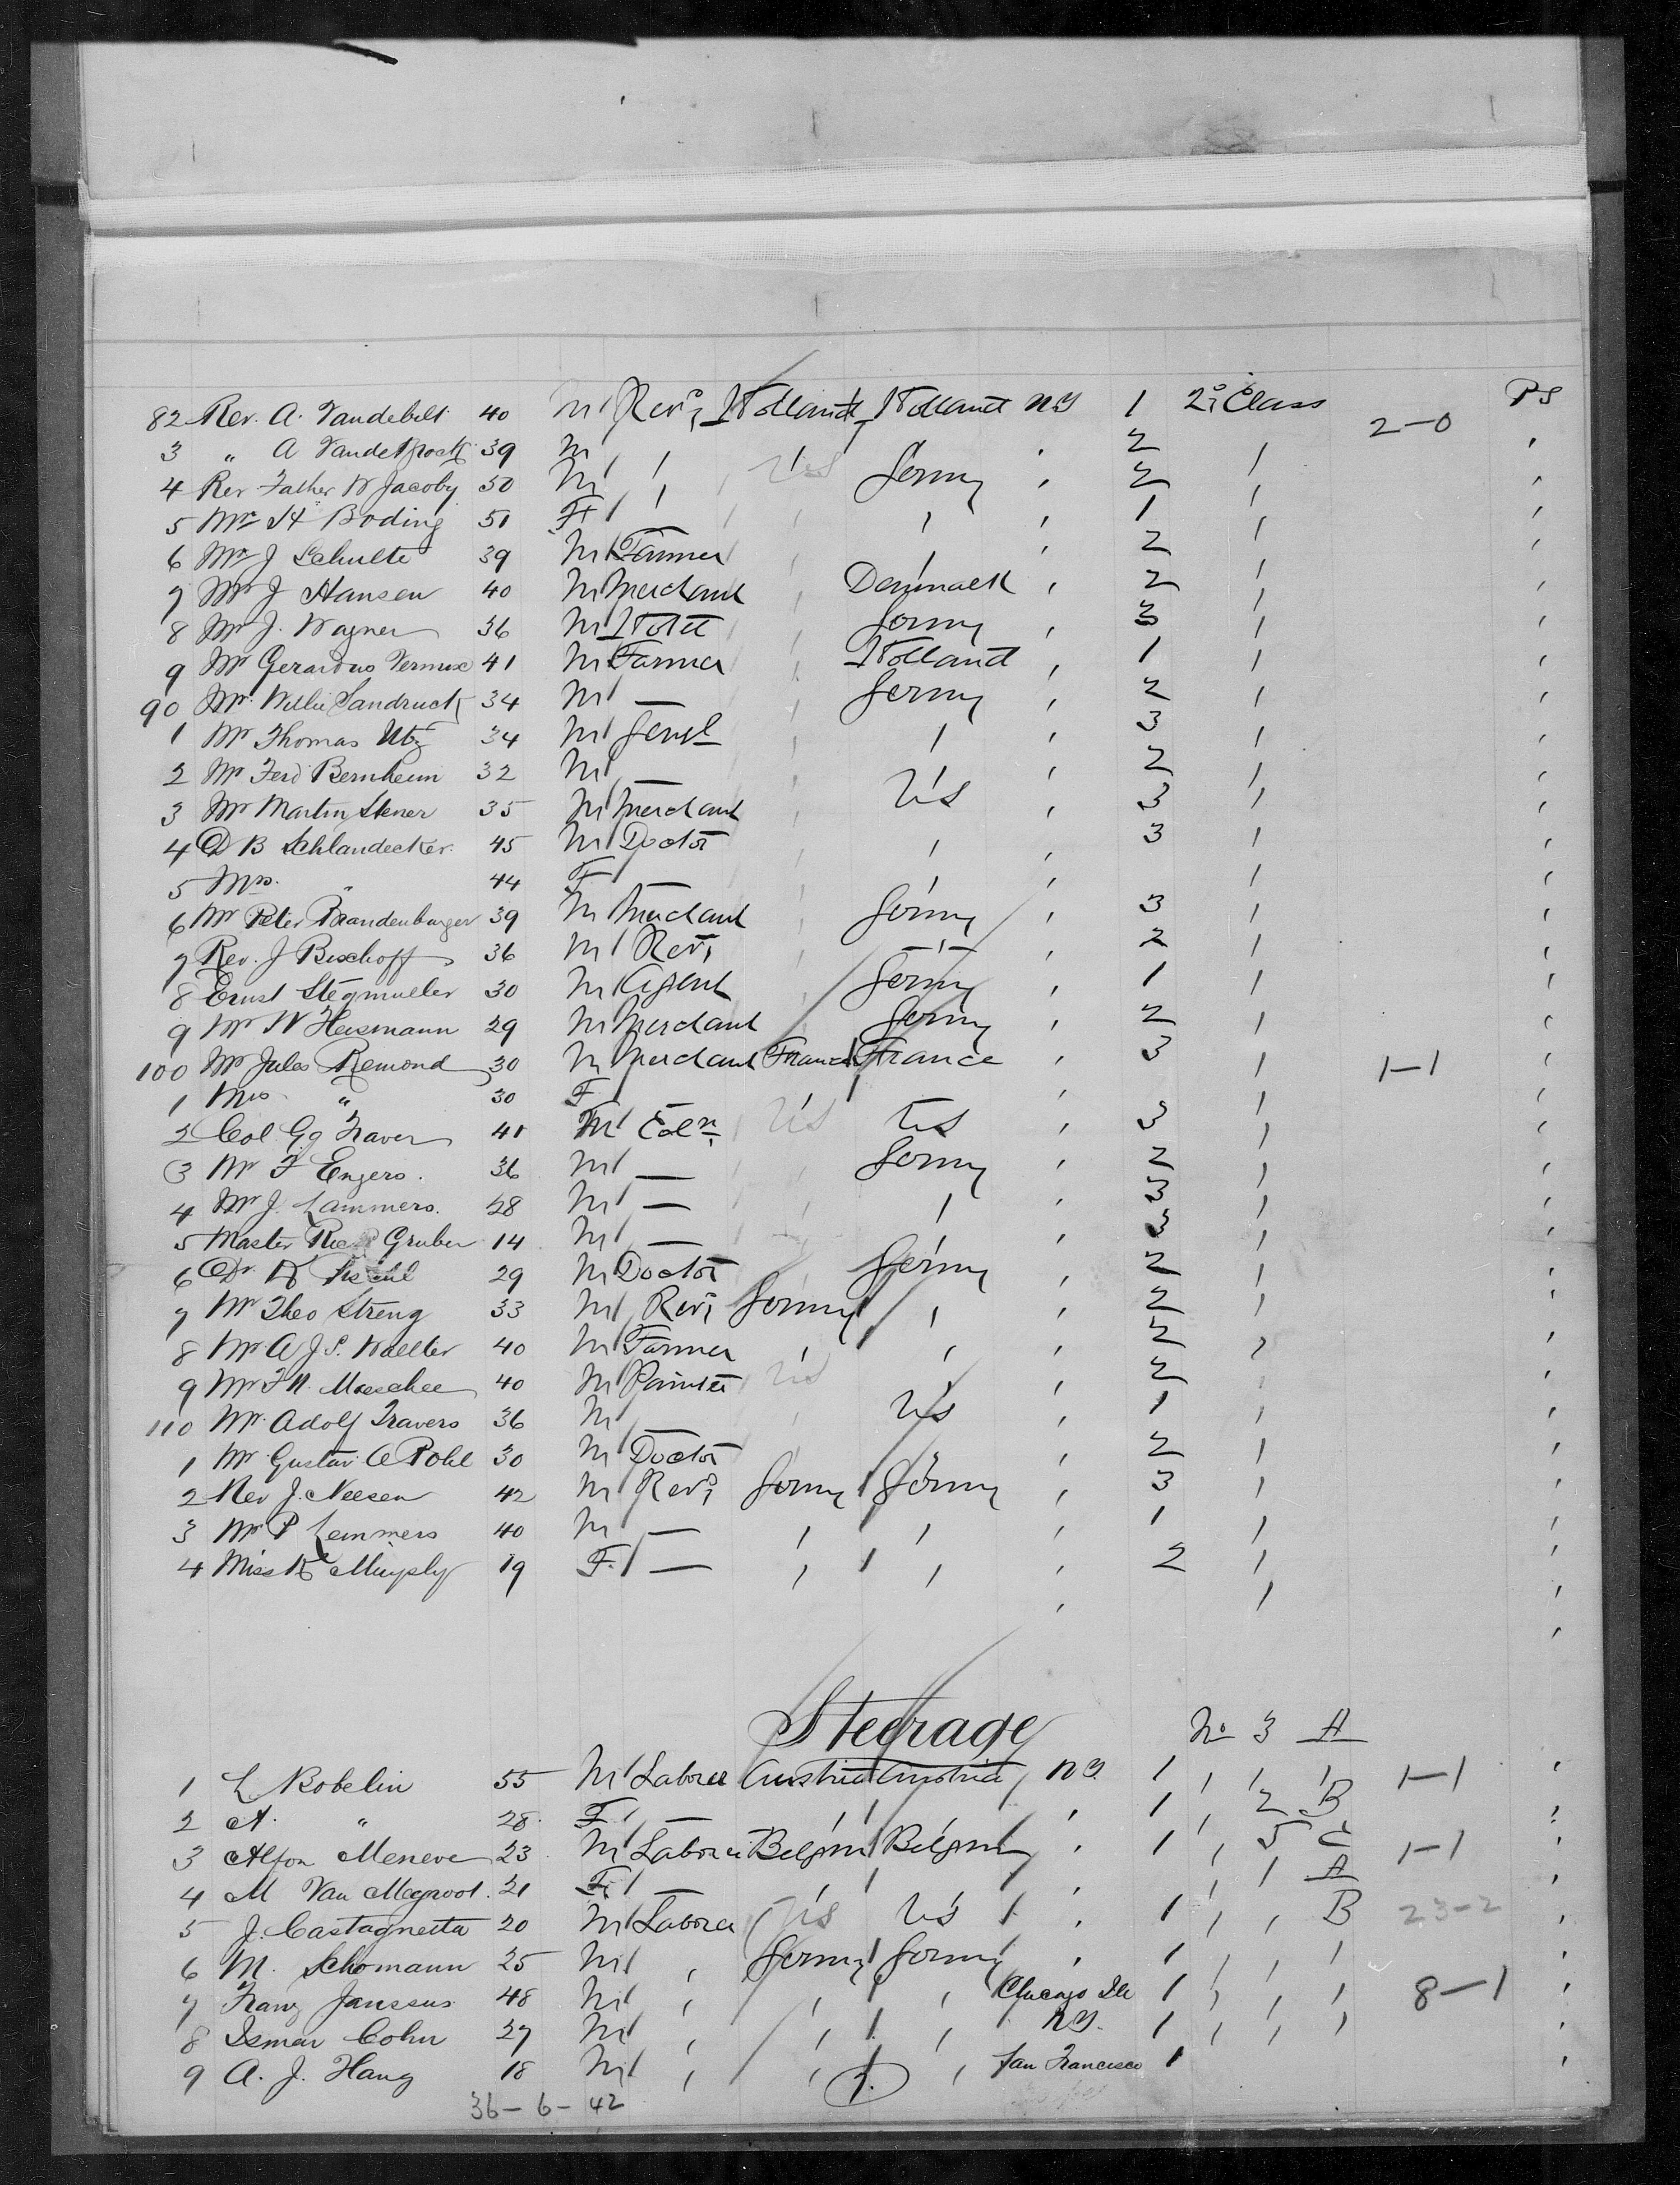 82 Rev. A. Vandebilt 40 M Revd Holland Holland NY 1 2d Class PS
3 " A 39 M ' ' 2 ' 2-0 '
4 Rev Father W Jacoby 50 M ' US Germy ' 2 ' '
5 H Boding 51 F ' ' ' ' 1 ' '
6 Mr J Schulte 39 M Farmer ' ' ' 2 ' '
7 Mr J Hansen 40 M Merchant ' Denmark ' 2 ' '
8 Mr J. Wagner 36 M ' Germy ' 3 ' '
9 Mr Gerardus 41 M Farmer ' Holland ' 1 ' '
90 Mr. Willie Sandruck 34 M — ' Germy ' 2 ' '
1 Mr Thomas Utz 34 M ' ' ' 3 ' '
2 Mr Ferd Bernheim 32 M — ' ' ' 2 ' '
3 Mr Martin Stener 35 M Merchant ' US ' 3 ' '
4 Dr B Schlandecker 45 M Doctor ' ' ' 3 ' '
5 Mrs. " 44 F — ' ' ' ' '
6 Mr Peter Brandenburger 39 M Merchant ' Germy ' 3 ' '
7 Rev. J Bischoff 36 M Revd ' — ' 2 ' '
8 Ernst Stegmueller 30 M Agent Germy ' 1 ' '
9 Mr W Heismann 29 M Merchant Germy ' 2 ' '
100 Mr Jules Remond 30 M Merchant France France ' 3 ' 1-1 '
1 Mrs " 30 F ' ' ' '
2 Col. Gg Traver 41 M Coln US US ' 3 ' '
3 Mr F Engers. 36 M — ' Germy ' 2 ' '
4 Mr J. Lammers. 28 M — ' ' ' 3 ' '
5 Master Gruber 14 M — ' 3 ' '
6 Dr. 29 M Doctor ' Germy ' 2 ' '
7 Mr Theo Streng 33 M Revd Germy ' ' 2 ' '
8 Mr A J S. 40 M Farmer ' ' ' 2 ' '
9 Mr F W. 40 M Painter US ' ' 2 ' '
110 Mr. Adolf Travers 36 M — ' US ' 1 ' '
1 Mr Gustav A Pohl 30 M Doctor ' 2 ' '
2 Rev J. Neesen 42 M Revd Germy Germy ' 3 ' '
3 Mr P Lemmers 40 M — ' ' ' 1 ' '
4 Miss 19 F. — ' ' ' 2 ' '
Steerage
No 3 A
1 L Robelin 55 M Laborer Austria Austria NY. 1 ' ' ' 1-1 '
2 A. " 28 F. — ' ' ' 1 ' 2 B '
3 Alfon Meneve 23 M Laborer Belgium Belgium ' 1 ' 5 C 1-1 '
4 M Van 21 F. — ' ' ' ' 1 A '
5 J. Castagnetta 20 M Laborer US US ' 1 ' ' B 23-2 '
6 M. Schomann 25 M ' Germy Germy ' 1 ' ' ' '
7 Franz Janssus 48 M ' ' ' Chicago Ill 1 ' ' ' 8-1 '
8 Ismar Cohn 27 M ' ' ' NY. 1 ' ' ' '
9 A. J. Hang 18 M ' ' ' San Francisco 1 '
36-6-42